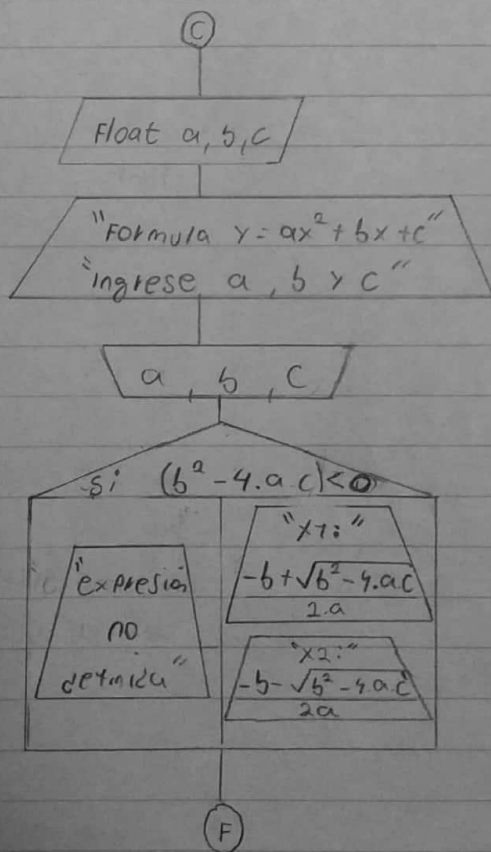 C
Float a, b, c
"Formula y = ax² + bx + c"
"ingrese a, b y c"
a, b, c
si (b² - 4.a.c) < 0
"expresión
no
definida"
"x1:"
-b + √b² - 4.a.c
2.a
"x2:"
-b - √b² - 4.a.c
2a
F